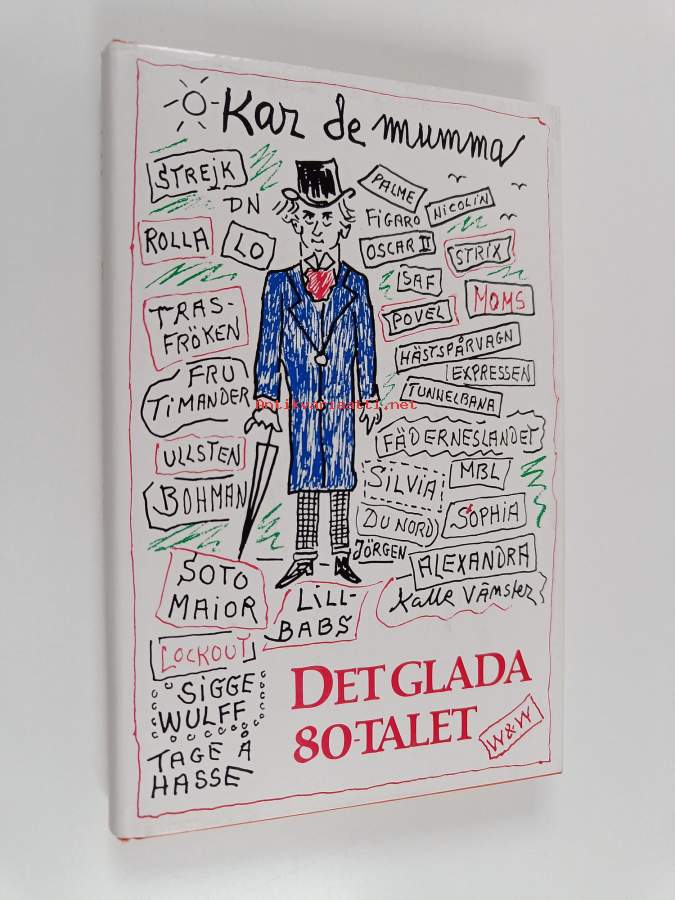 Kar de mumma
STREJK
DN
ROLLA
LO
TRAS-
FRÖKEN
FRU
TIMANDER
ULLSTEN
BOHMAN
SOTO
MAIOR
LOCKOUT
SIGGE
WULFF
TAGE Å
HASSE
PALME
NICOLIN
FIGARO
OSCAR II
STRIX
SAF
MOMS
POVEL
HÄSTSPÅRVAGN
EXPRESSEN
TUNNELBANA
Antikvariaatti.net
FÄDERNESLANDET
SILVIA
MBL
DU NORD
SOPHIA
JÖRGEN
ALEXANDRA
Kalle Vämster
LILL-
BABS
DET GLADA
80-TALET
W&W